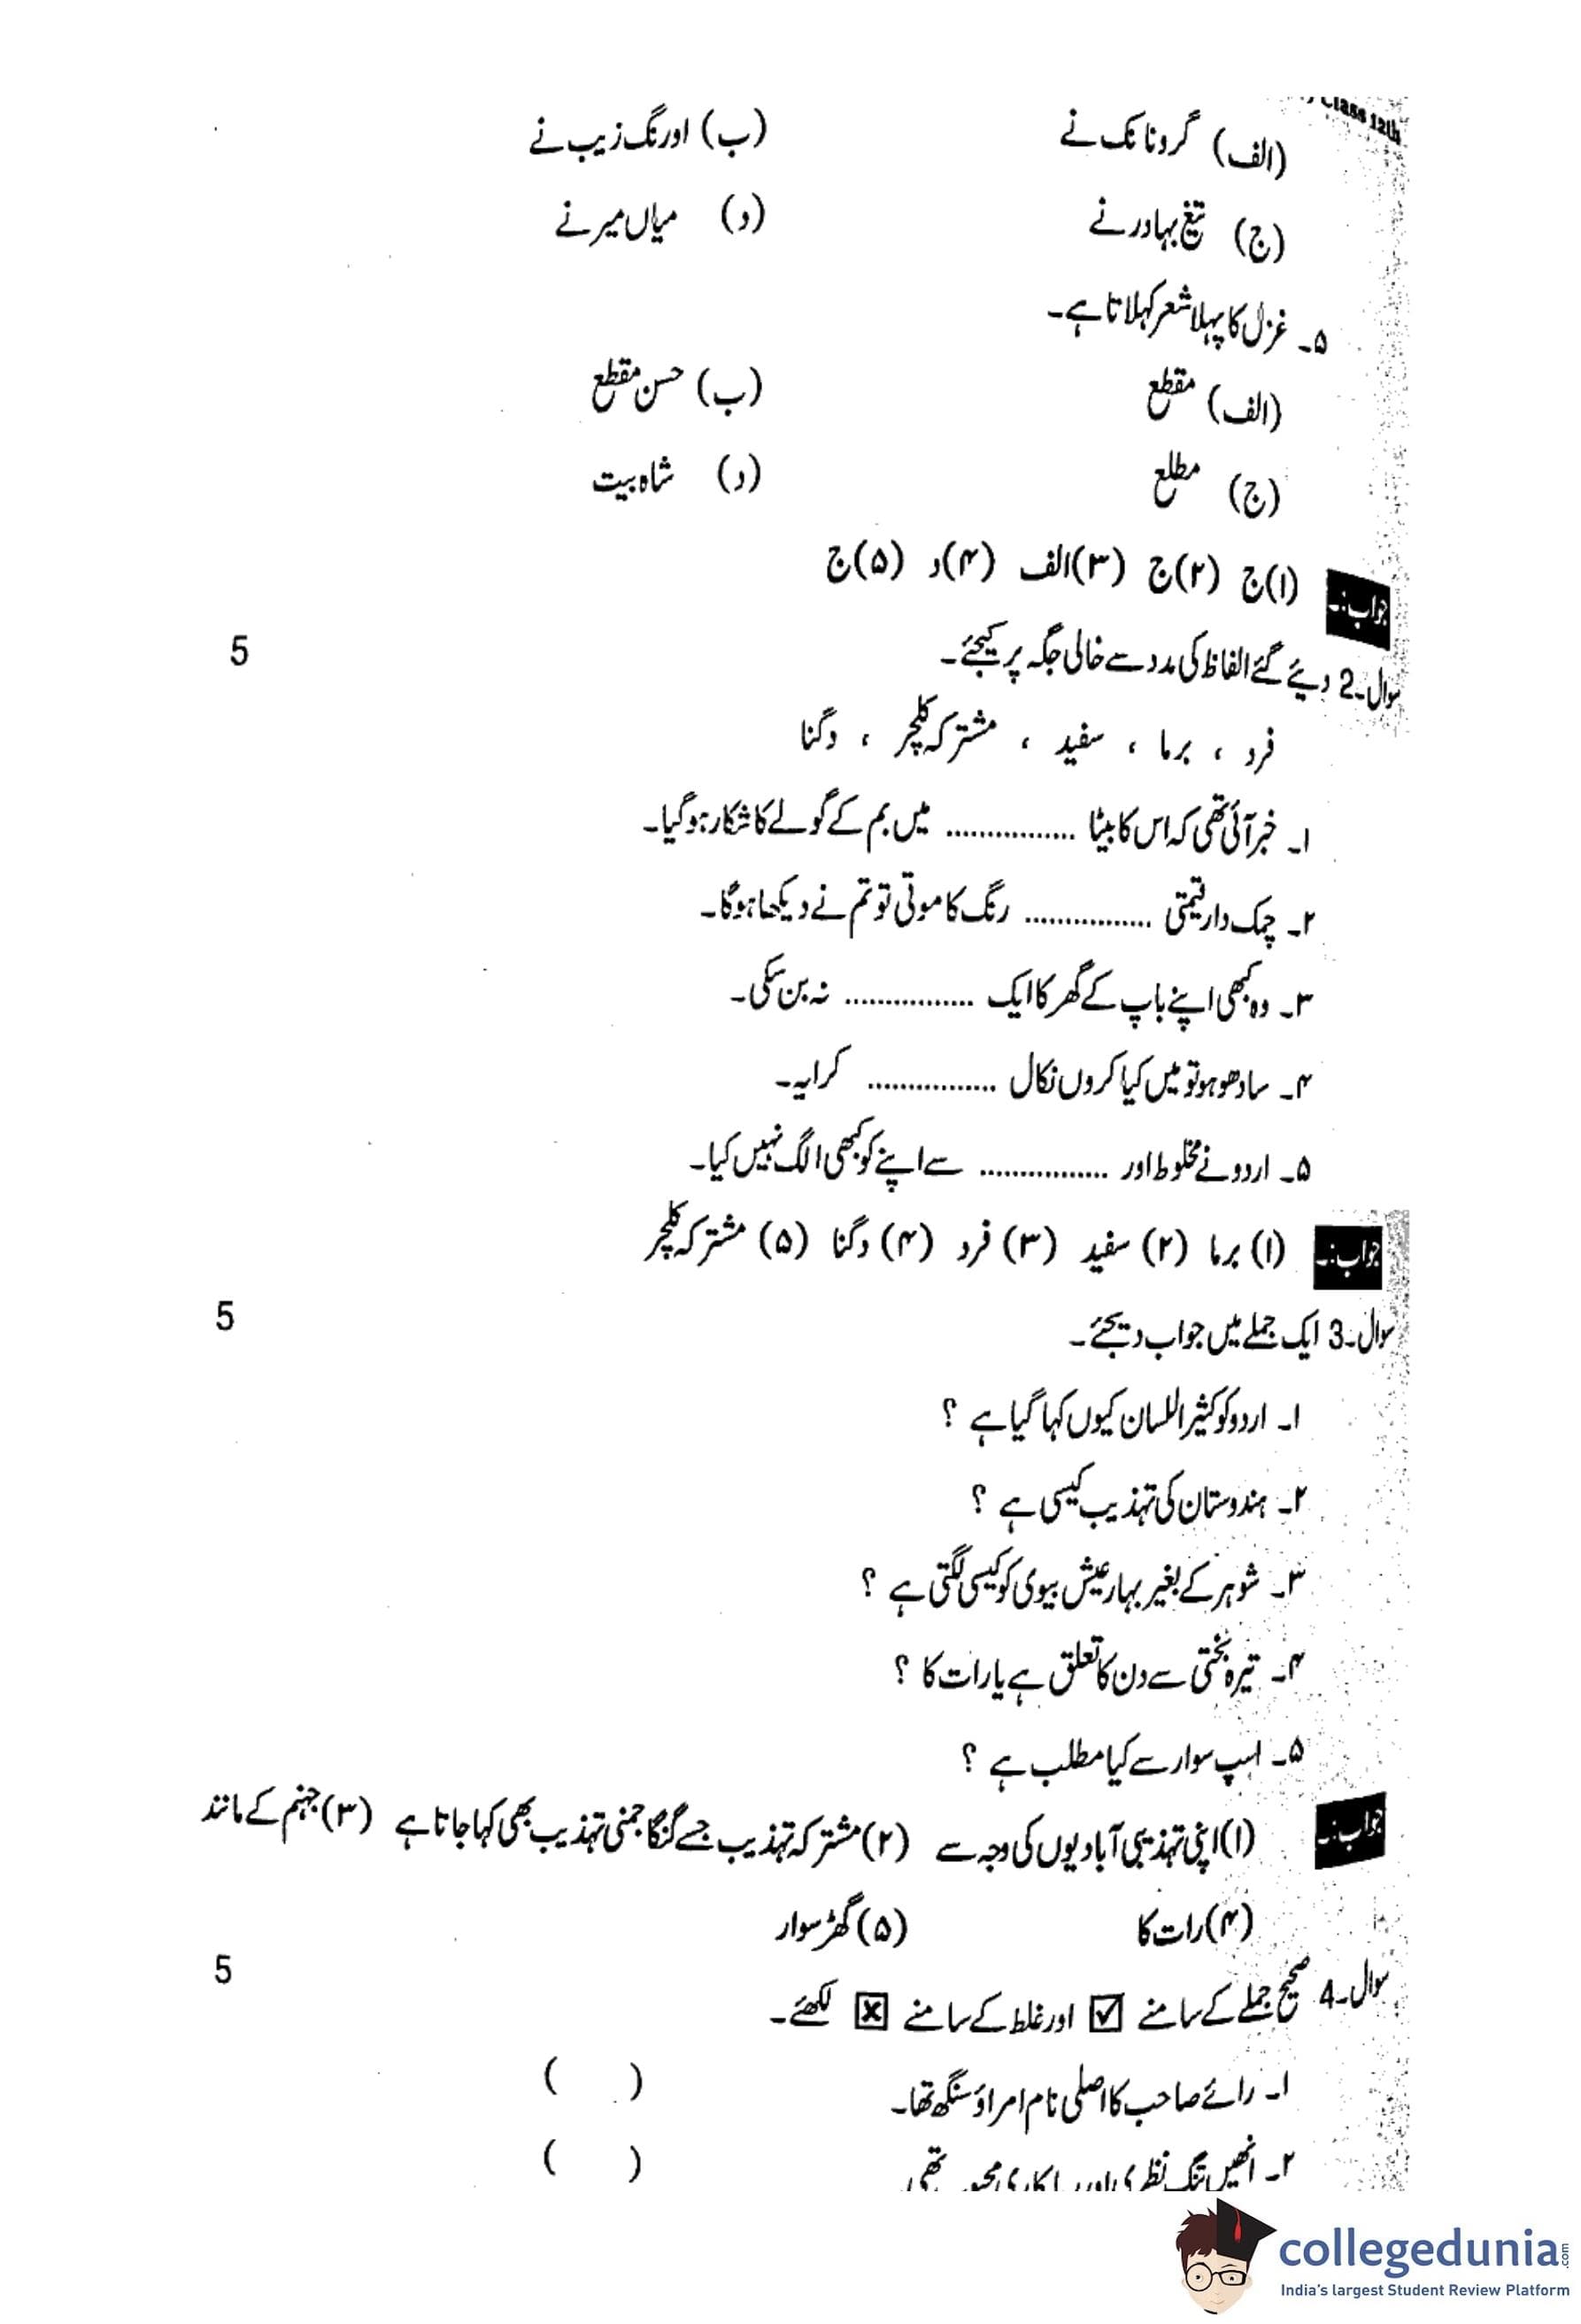 Class 12th
(الف) گرونانک نے (ب) اورنگ زیب نے
(ج) تیغ بہادر نے (د) میاں میر نے
۵۔ غزل کا پہلا شعر کہلاتا ہے۔
(الف) مقطع (ب) حسن مقطع
(ج) مطلع (د) شاہ بیت
جواب:۔ (۱) ج (۲) ج (۳) الف (۴) د (۵) ج
سوال۔2 دیئے گئے الفاظ کی مدد سے خالی جگہ پر کیجئے۔ 5
فرد ، برما ، سفید ، مشترکہ کلچر ، دگنا
۱۔ خبر آئی تھی کہ اس کا بیٹا ................ میں بم کے گولے کا شکار ہو گیا۔
۲۔ چمک دار قیمتی ................ رنگ کا موتی تو تم نے دیکھا ہوگا۔
۳۔ وہ کبھی اپنے باپ کے گھر کا ایک ................ نہ بن سکی۔
۴۔ سادھو ہو تو میں کیا کروں نکال ................ کرایہ۔
۵۔ اردو نے مخلوط اور ................ سے اپنے کو کبھی الگ نہیں کیا۔
جواب:۔ (۱) برما (۲) سفید (۳) فرد (۴) دگنا (۵) مشترکہ کلچر
سوال۔3 ایک جملے میں جواب دیجئے۔ 5
۱۔ اردو کو کثیر اللسان کیوں کہا گیا ہے ؟
۲۔ ہندوستان کی تہذیب کیسی ہے ؟
۳۔ شوہر کے بغیر بہار عیش بیوی کو کیسی لگتی ہے ؟
۴۔ تیرہ بختی سے دن کا تعلق ہے یا رات کا ؟
۵۔ اسپ سوار سے کیا مطلب ہے ؟
جواب:۔ (۱) اپنی تہذیبی آبادیوں کی وجہ سے (۲) مشترکہ تہذیب جسے گنگا جمنی تہذیب بھی کہا جاتا ہے (۳) جہنم کے مانند
(۴) رات کا (۵) گھڑ سوار
سوال۔4 صحیح جملے کے سامنے ☑ اور غلط کے سامنے ☒ لکھئے۔ 5
۱۔ رائے صاحب کا اصلی نام امراؤ سنگھ تھا۔ ( )
۲۔ انھیں تنگ نظری اور تھی ( )
collegedunia.com
India's largest Student Review Platform